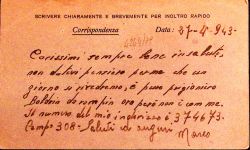 SCRIVERE CHIARAMENTE E BREVEMENTE PER INOLTRO RAPIDO
Corrispondenza Data: 27-4-943-
Carissimi sempre bene in salute,
non datevi pensiero per me che un
giorno ci rivedremo, è pure prigioniero
però non è con me.
Il numero del mio indirizzo è 374673.
Campo 308- Saluti ed auguri
Marco